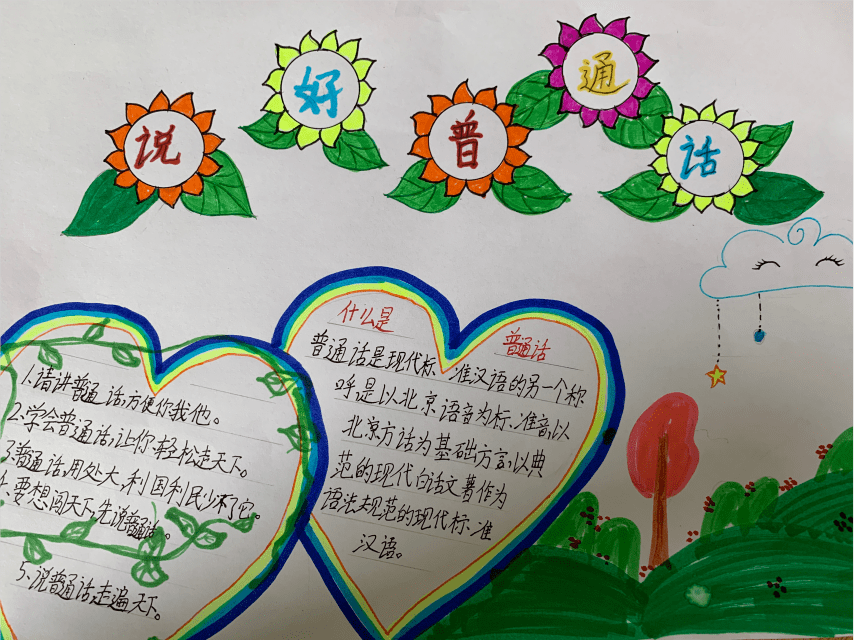 说好普通话
1.请讲普通话,方便你我他。
2.学会普通话,让你轻松走天下。
3.普通话,用处大,利国利民少不了它。
4.要想闯天下,先说普通话。
5.说普通话,走遍天下。
什么是
普通话
普通话是现代标准汉语的另一个称
呼是以北京语音为标准音,以
北京方话为基础方言,以典
范的现代白话文著作为
语法规范的现代标准
汉语。